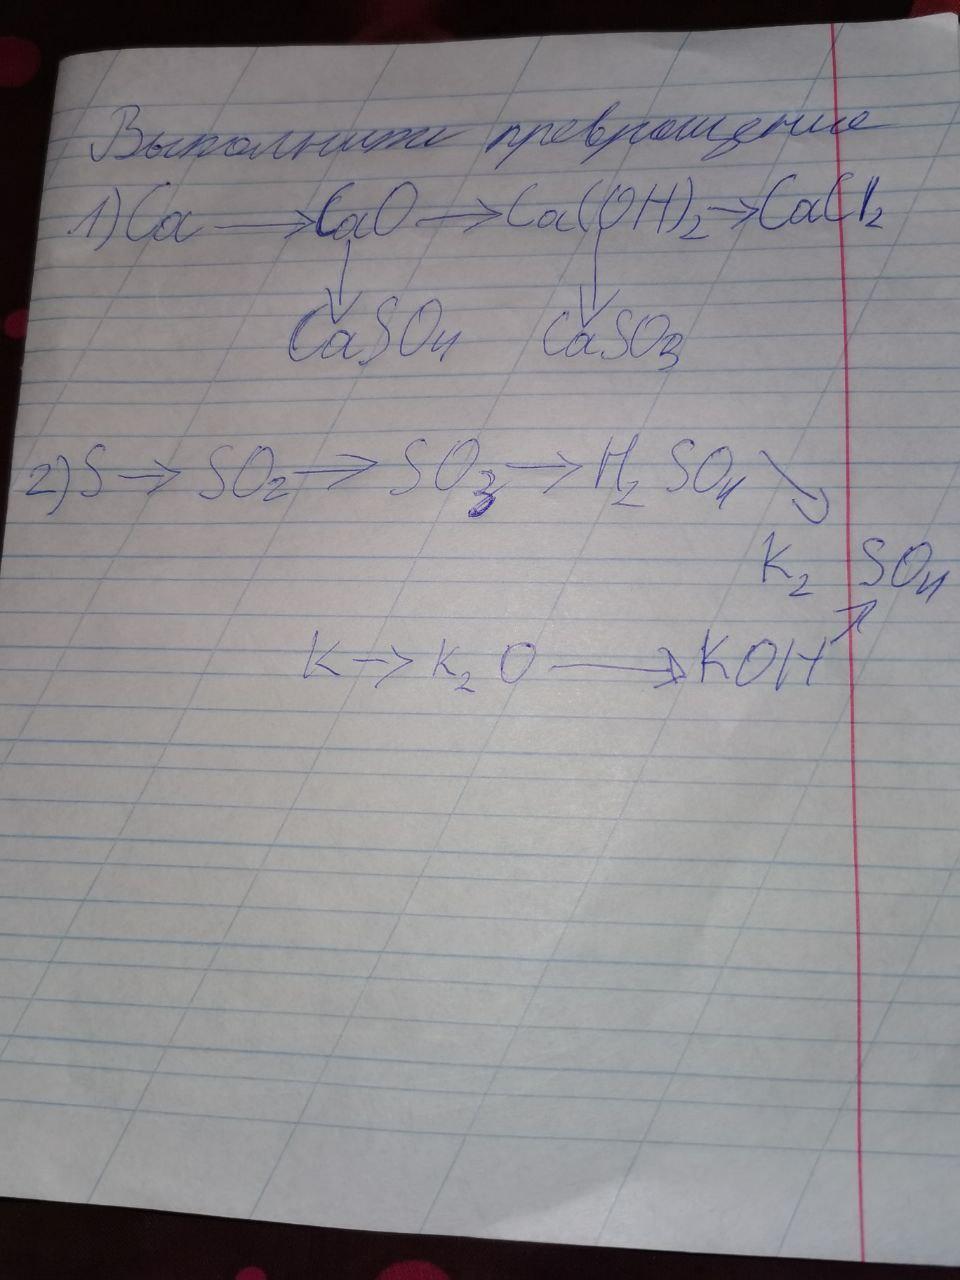 Выполните превращение
1) Ca → CaO → Ca(OH)₂ → CaCl₂
↓ ↓
CaSO₄ CaSO₃
2) S → SO₂ → SO₃ → H₂SO₄ ↘
K₂SO₄
K → K₂O → KOH ↗